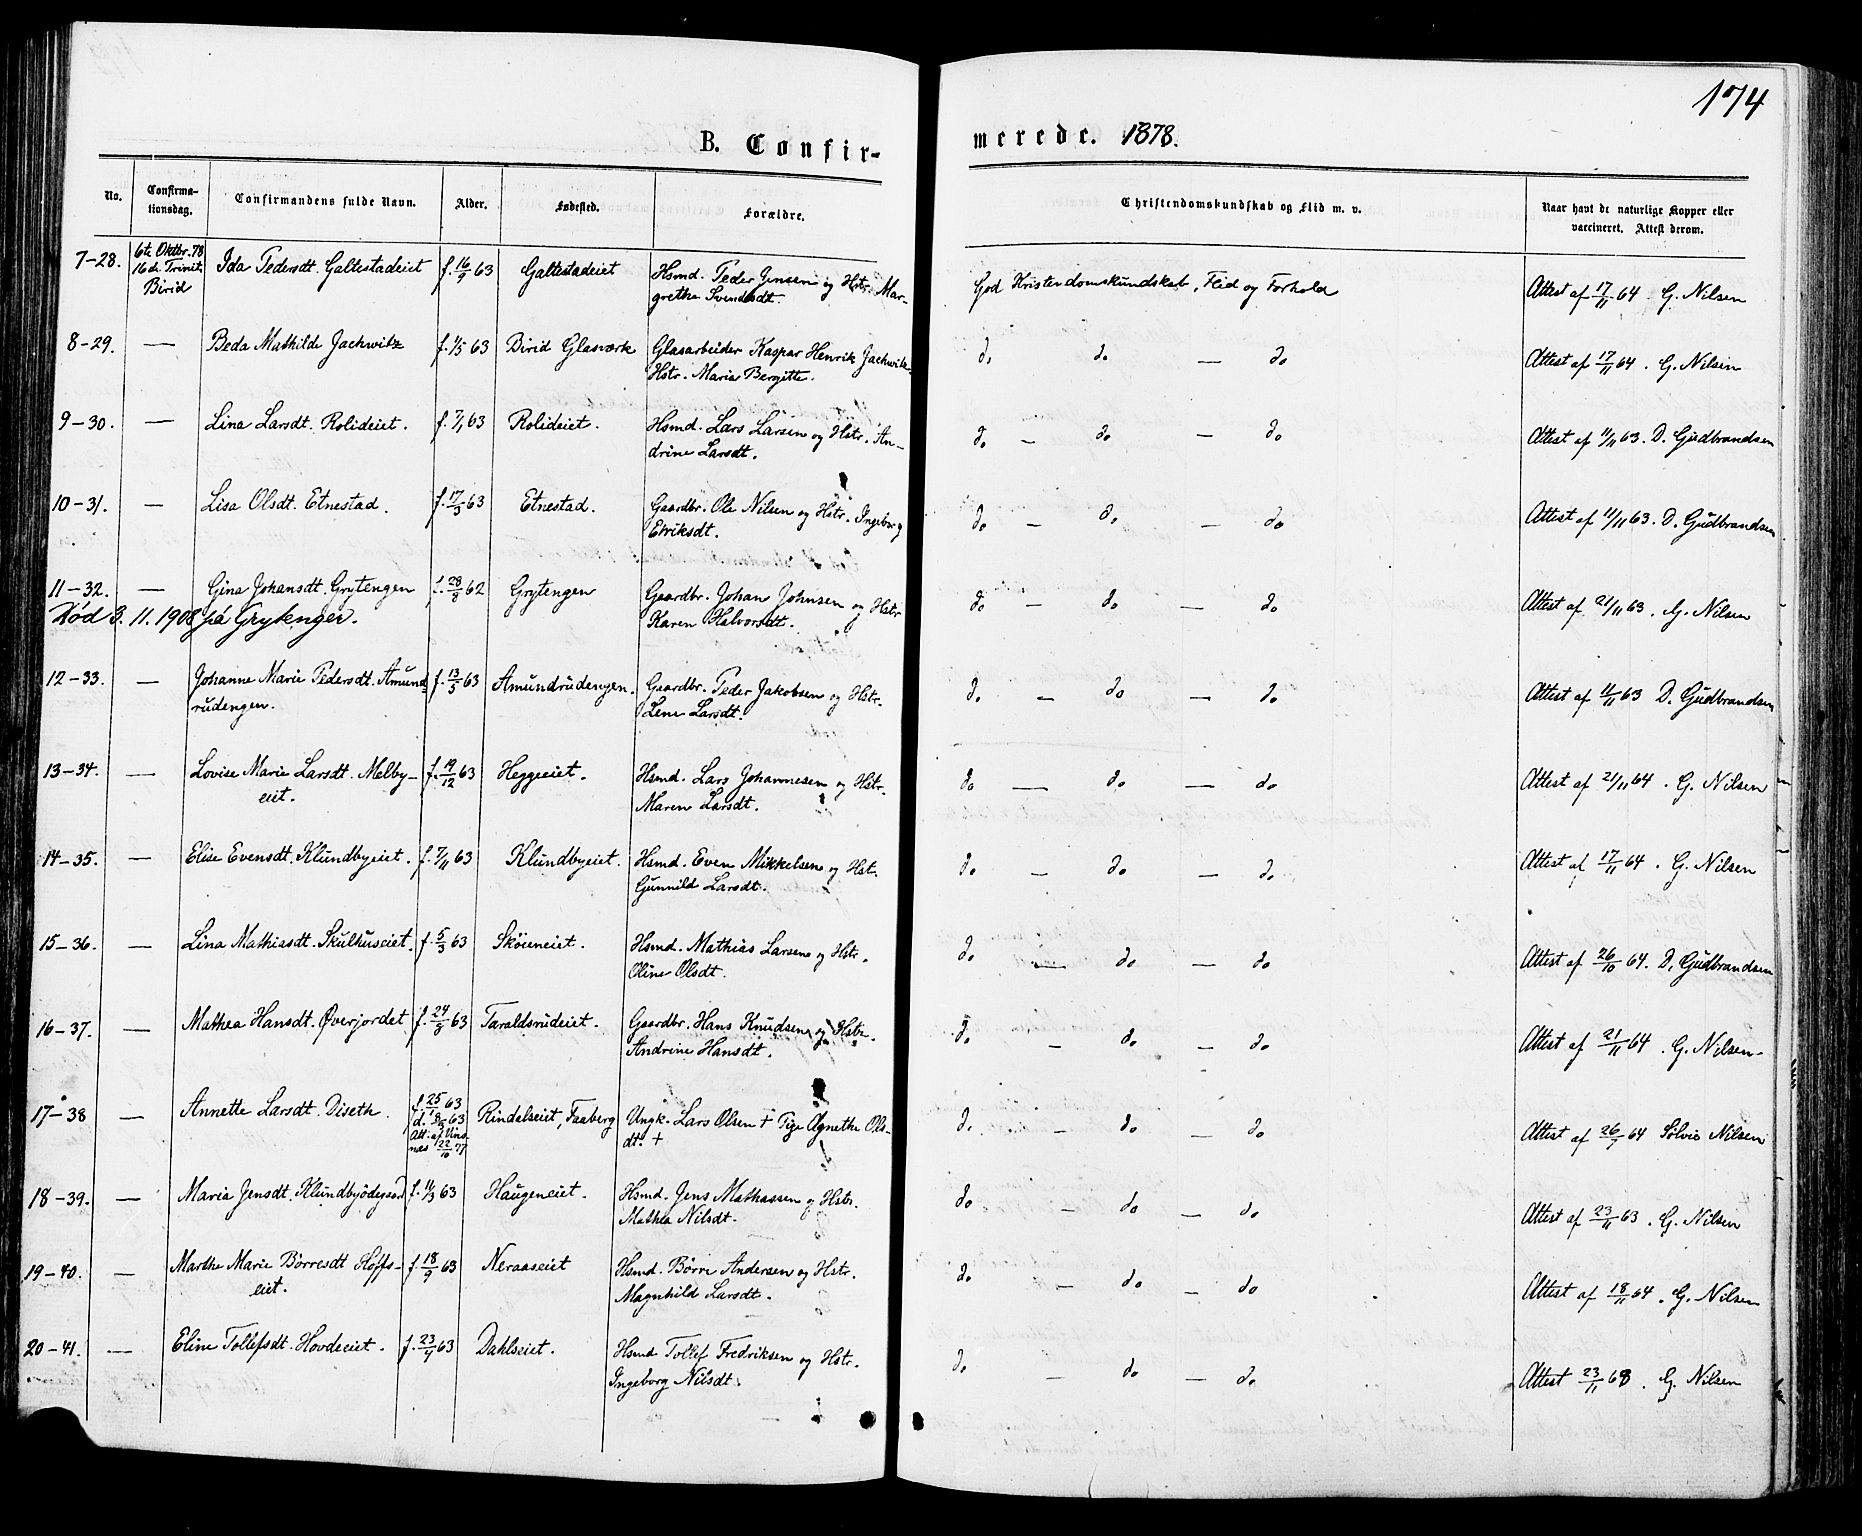 174
B. Confir-
merede. 1878.
No.
Confirma-
tionsdag.
Confirmandens fulde Navn.
Alder.
Fødested.
Forældre.
Christendomskundskab og Flid m. v.
Naar havt de naturlige Kopper eller
vaccineret. Attest derom.
7-28. 6te Oktbr. 78 Ida Pedersdt. Galtestadeiet f. 16/9 63 Galtestadeiet Hsmd. Peder Jensen og Hstr. Mar- God Kristendomskundskab, Flid og Forhold Attest af 17/11 64 G. Nilsen
16de Trinit. grethe Svendsdt.
Birid
8-29. — Beda Mathilde Jachwitz f. 1/5 63 Birid Glasværk Glasarbeider Kaspar Henrik Jachwitz do do — do Attest af 17/11 64. G. Nilsen
Hstr. Maria Bergitte.
9-30. — Lina Larsdt. Rolideiet. f. 7/1 63 Rolideiet. Hsmd. Lars Larsen og Hstr. An- do — do — do Attest af 11/11 63. D. Gudbrandsen
drine Larsdt.
10-31. — Lisa Olsdt. Etnestad. f. 17/3 63 Etnestad. Gaardbr. Ole Nilsen og Hstr. Ingeborg do — do — do Attest af 11/11 63. D. Gudbrandsen
Elriksdt.
11-32. — Gina Johansdt. Grytengen f. 28/8 62 Grytengen Gaardbr. Johan Johnsen og Hstr do — do — do Attest af 21/11 63. G. Nilsen
Død 3. 11. 1908 på Grytengen. Karen Halvorsdt.
12-33. — Johanne Marie Pedersdt. Amund- f. 13/5 63 Amundrudengen. Gaardbr. Peder Jakobsen og Hstr. do — do — do Attest af 11/11 63 D. Gudbrandsen
rudengen. Lene Larsdt.
13-34. — Lovise Marie Larsdt. Melby- f. 19/12 63 Heggeeiet. Hsmd. Lars Johannesen og Hstr. do — do — do Attest af 21/11 64. G. Nilsen
eiet. Maren Larsdt.
14-35. — Elise Evensdt. Klundbyeiet. f. 7/11 63 Klundbyeiet. Hsmd. Even Mikkelsen og Hst. do — do — do Attest af 17/11 64. G. Nilsen
Gunnild Larsdt.
15-36. — Lina Mathiasdt. Skulhuseiet. f. 5/3 63 Skøieneiet. Hsmd. Mathias Larsen og Hstr. do — do — do Attest af 26/10 64. D. Gudbrandsen
Oline Olsdt.
16-37. — Mathea Hansdt. Øverjordet f. 24/8 63 Taraldsrudeiet. Gaardbr. Hans Knudsen og Hstr. do — do — do Attest af 21/11 64. G. Nilsen.
Andrine Hansdt.
17-38 — Annette Larsdt. Diseth. f. 25/1 63 Rindalseiet, Faaberg Ungk. Lars Olsen + Pige Agnethe Ols- do — do — do Attest af 26/7 64 Sølvie Nilsen
d. 63 dt. +
Att. af Vins-
næs 22/10 77
18-39. — Maria Jensdt. Klundbyødegaard f. 11/3 63 Haugeneiet. Hsmd. Jens Mathassen og Hstr. do — do — do Attest af 23/11 63. G. Nilsen
Mathea Nilsdt.
19-40. — Marthe Marie Børresdt Hoffs- f. 18/9 63 Neraaseiet Hsmd. Børre Andersen og Hstr. do — do — do Attest af 18/11 64. G. Nilsen
eiet. Magnhild Larsdt.
20-41. — Eline Tollefsdt. Hovdeeiet. f. 23/4 63 Dahlseiet. Hsmd Tollef Fredriksen og Hstr. do — do — do Attest 23/11 68. G. Nilsen
Ingeborg Nilsdt.